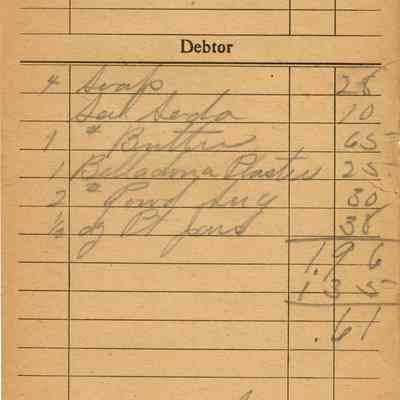 Debtor
4 Soap 28
Sal Soda 10
1 # Butter 65
1 Belladona Plaster 25
2 # Powd sug 30
½ dz Pt jars 38
1.96
1 35
.61